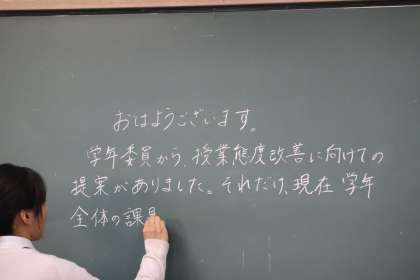 おはようございます。
学年委員から、授業態度改善に向けての
提案がありました。それだけ、現在 学年
全体の課